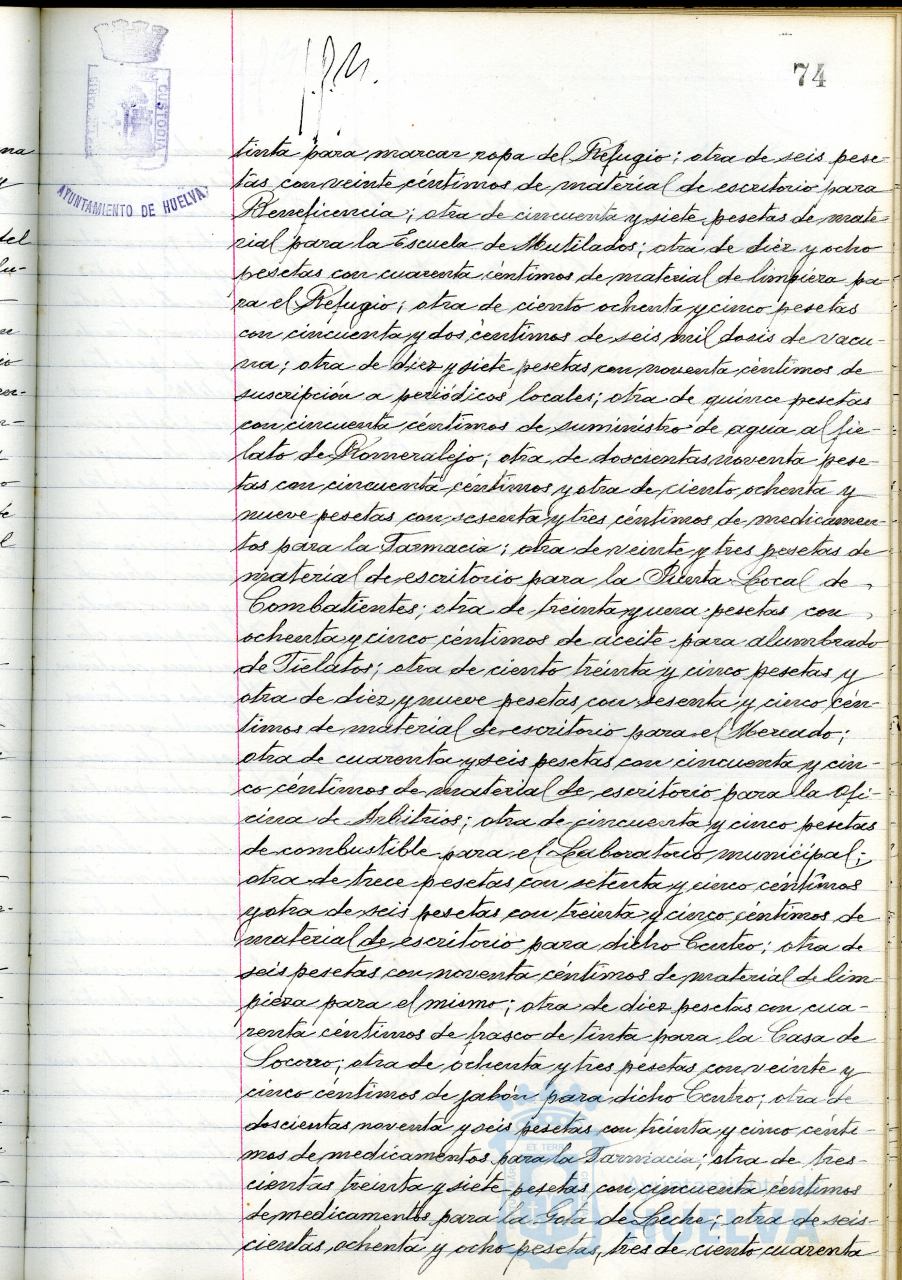 74
CUSTODIA
AYUNTAMIENTO DE HUELVA
tinta para marcar ropa del Refugio; otra de seis pese-
tas con veinte céntimos de material de escritorio para
Beneficencia; otra de cincuenta y siete pesetas de mate-
rial para la Escuela de Mutilados; otra de diéz y ocho
pesetas con cuarenta céntimos de material de limpieza pa-
ra el Refugio; otra de ciento ochenta y cinco pesetas
con cincuenta y dos céntimos de seis mil dosis de vacu-
na; otra de diez y siete pesetas con noventa céntimos de
suscripción a periódicos locales; otra de quince pesetas
con cincuenta céntimos de suministro de agua al fie-
lato de Romeralejo; otra de doscientas noventa pese-
tas con cincuenta céntimos y otra de ciento ochenta y
nueve pesetas con sesenta y tres céntimos de medicamen-
tos para la Farmacia; otra de veinte y tres pesetas de
material de escritorio para la Junta Local de
Combatientes; otra de treinta y una pesetas con
ochenta y cinco céntimos de aceite para alumbrado
de Fielatos; otra de ciento treinta y cinco pesetas y
otra de diez y nueve pesetas con sesenta y cinco cén-
timos de material de escritorio para el Mercado;
otra de cuarenta y seis pesetas con cincuenta y cin-
co céntimos de material de escritorio para la Ofi-
cina de Arbitrios; otra de cincuenta y cinco pesetas
de combustible para el Laboratorio municipal;
otra de trece pesetas con setenta y cinco céntimos
y otra de seis pesetas con treinta y cinco céntimos de
material de escritorio para dicho Centro; otra de
seis pesetas con noventa céntimos de material de lim-
pieza para el mismo; otra de diez pesetas con cua-
renta céntimos de frasco de tinta para la Casa de
Socorro; otra de ochenta y tres pesetas con veinte y
cinco céntimos de jabón para dicho Centro; otra de
doscientas noventa y seis pesetas con treinta y cinco cénti-
mos de medicamentos para la Farmacia; otra de tres-
cientas treinta y siete pesetas con cincuenta céntimos
de medicamentos para la Gota de Leche; otra de seis-
cientas ochenta y ocho pesetas, tres de ciento cuarenta
Ayuntamiento de
HUELVA